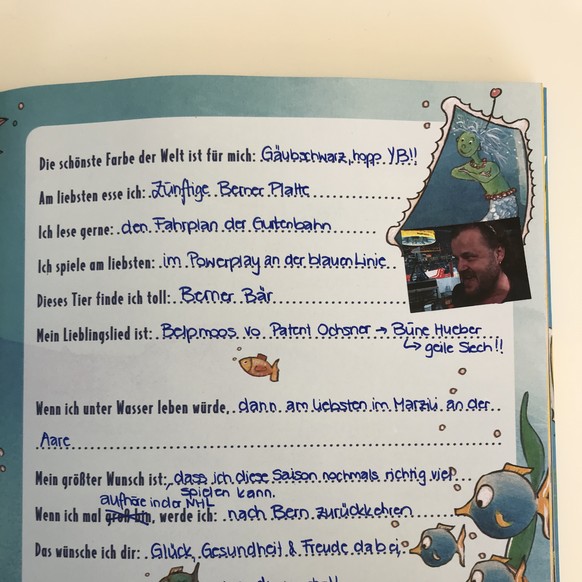 Die schönste Farbe der Welt ist für mich: Gäubschwarz, hopp YB!!
Am liebsten esse ich: Zünftige Berner Platte
Ich lese gerne: den Fahrplan der Gurtenbahn
Ich spiele am liebsten: im Powerplay an der blauen Linie
Dieses Tier finde ich toll: Berner Bär
Mein Lieblingslied ist: Belpmoos vo Patent Ochsner → Büne Hueber
↳ geile Siech!!
Wenn ich unter Wasser leben würde, dann am liebsten im Marzili an der
Aare
Mein größter Wunsch ist: dass ich diese Saison nochmals richtig viel
spielen kann.
aufhöre in der NHL
Wenn ich mal groß bin, werde ich: nach Bern zurückkehren
Das wünsche ich dir: Glück, Gesundheit & Freude dabei,